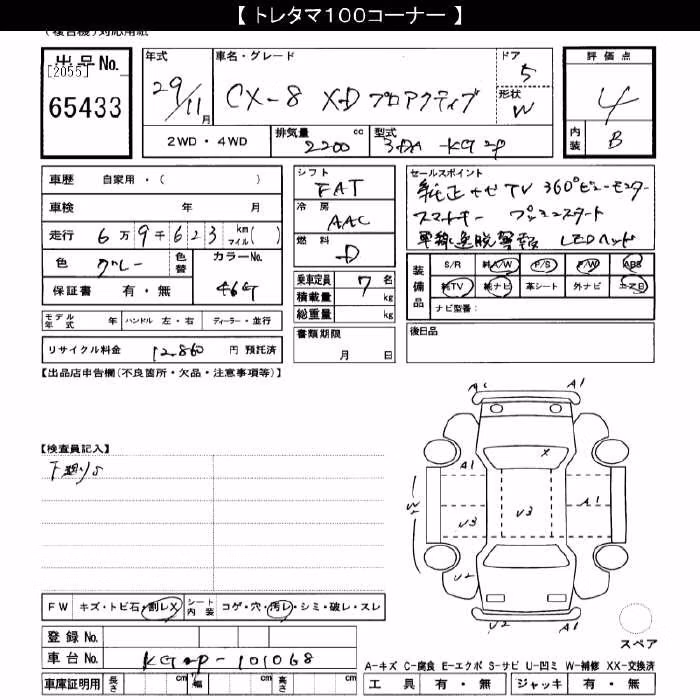 【 トレタマ100コーナー 】
(複合機)対応用紙
出品No.
[2055]
65433
年式
29/11
月
車名・グレード
CX-8 XD プロアクティブ
ドア
5
形状
W
評価点
4
内装
B
2WD・4WD
排気量
2200
cc
型式
3DA-KG2P
車歴 自家用・( )
車検 年 月
走行 6万9千623 km マイル( )
色 グレー
色替
カラーNo.
46G
保証書 有・無
シフト
FAT
冷房
AAC
燃料
D
乗車定員 7 名
積載量 kg
総重量 kg
セールスポイント
純正ナビTV 360°ビューモニター
スマートキー プッシュスタート
車線逸脱警報 LEDヘッド
装備品
S/R 純A/W P/S P/W ABS
純TV 純ナビ 革シート 外ナビ エアB
ナビ型番:
モデル年式 年 ハンドル 左・右 ディーラー・並行
リサイクル料金 12,860 円 預託済
書類期限
月 日
後日品
【出品店申告欄(不良箇所・欠品・注意事項等)】
【検査員記入】
下廻りS
A1
A1
X
A1
A1
W2
U3
U3
U2
U2
A1
スペア
FW キズ・トビ石・割レX
シート内装 コゲ・穴・汚レ・シミ・破レ・スレ
登録No.
車台No. KG2P-101068
車庫証明用 長さ cm 幅 cm 高さ cm
A-キズ C-腐食 E-エクボ S-サビ U-凹ミ W-補修 XX-交換済
工具 有・無 ジャッキ 有・無